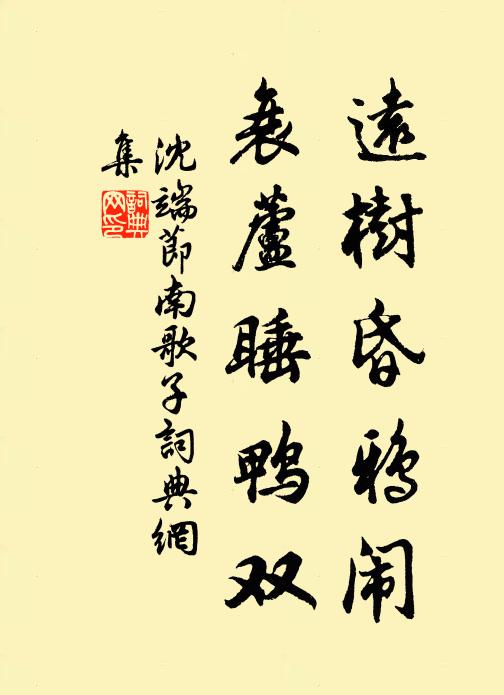 遠樹昏鴉闹
衰蘆睡鴨双
沈端節南歌子詞典網
集
詞典
网印